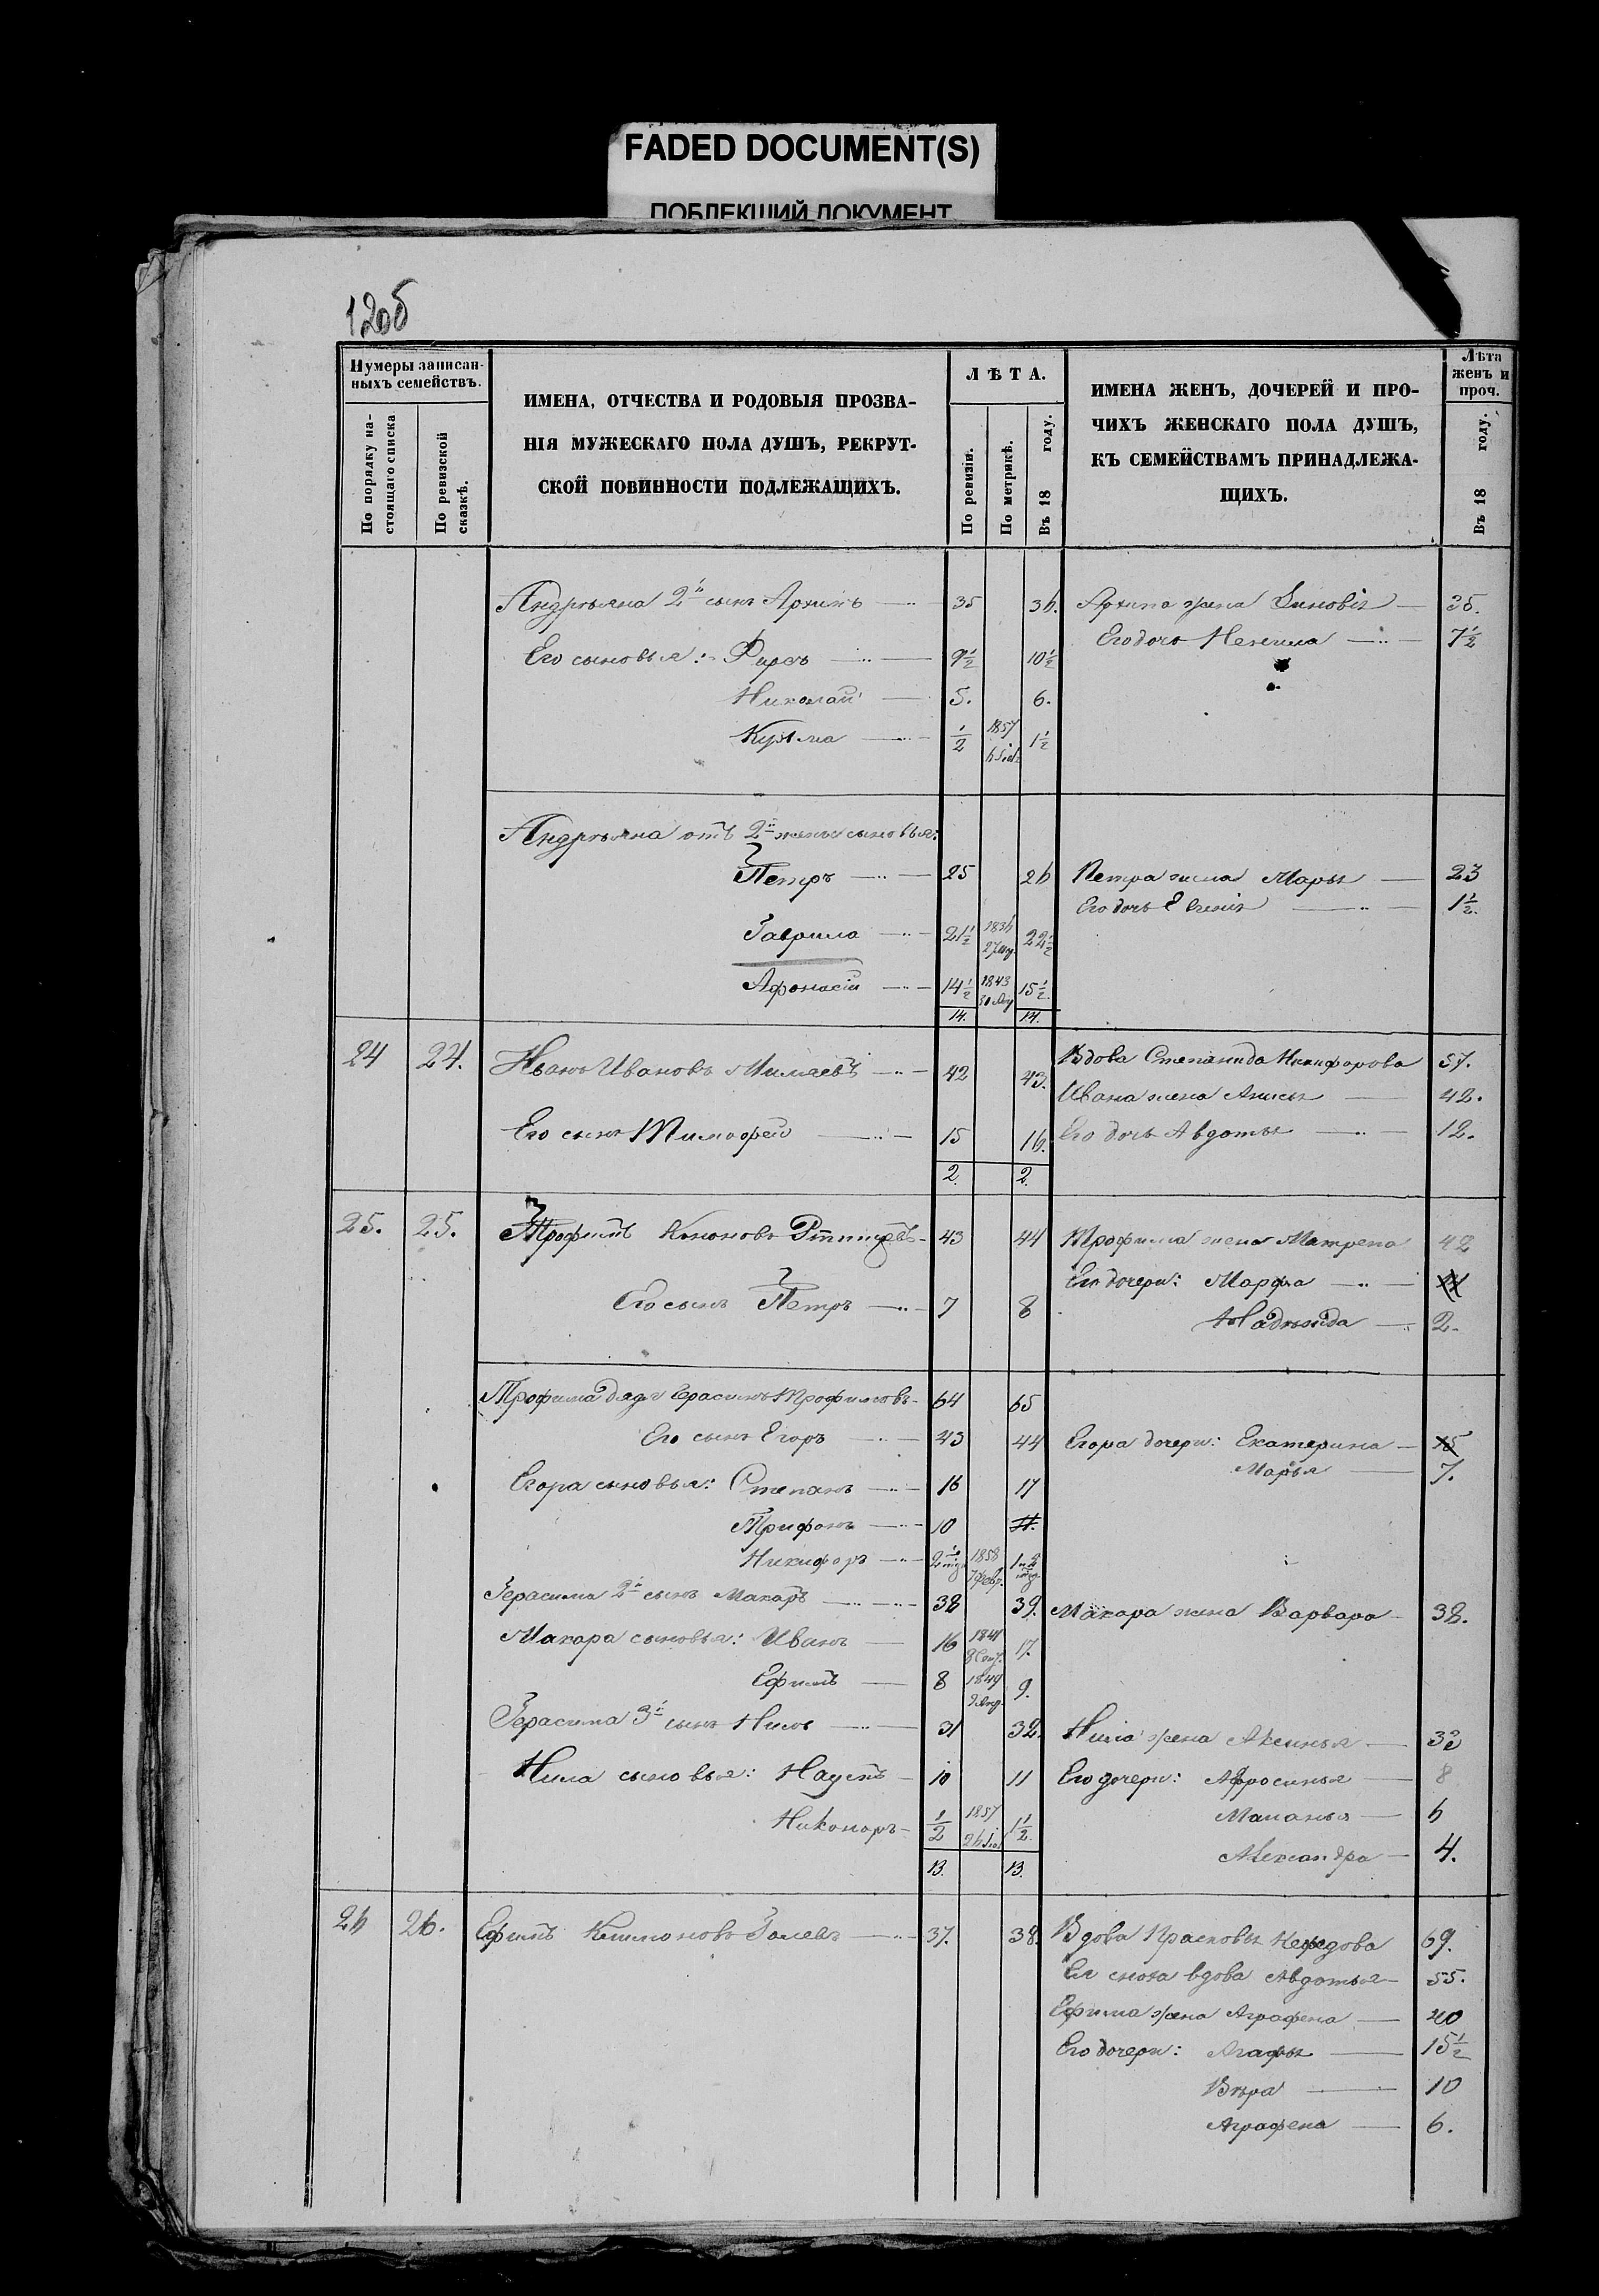 FADED DOCUMENT(S)
ПОБЛЕКШИЙ ДОКУМЕНТ
120б
Нумеры записан-
ныхъ семействъ.
По порядку на-
стоящаго списка
По ревизской
сказкѣ.
ИМЕНА, ОТЧЕСТВА И РОДОВЫЯ ПРОЗВА-
НІЯ МУЖЕСКАГО ПОЛА ДУШЪ, РЕКРУТ-
СКОЙ ПОВИННОСТИ ПОДЛЕЖАЩИХЪ.
ЛѢТА.
По ревизіи.
По метрикѣ.
Въ 18 году.
ИМЕНА ЖЕНЪ, ДОЧЕРЕЙ И ПРО-
ЧИХЪ ЖЕНСКАГО ПОЛА ДУШЪ,
КЪ СЕМЕЙСТВАМЪ ПРИНАДЛЕЖА-
ЩИХЪ.
Лѣта
женъ и
проч.
Въ 18 году.
Андреяна 2й сынъ Архипъ 35 36. Архипа жена Зиновія 35.
Его дочь 7½
Его сыновья: Фирсъ 9½ 10½
Николай 5. 6.
Кузма ½ 1857 1½
Андреяна отъ 2й жены сыновья:
Петръ 25 26 Петра жена Марья 23
Его дочь Евгенія 1½.
Гаврила 21½ 1836 22½
Афонасій 14½ 1843 15½.
14. 14.
24 24. Иванъ Ивановъ 42 43. Вдова Степанида Никифорова 57.
Ивана жена Анисья 42.
Его сынъ Тимофей 15 16. Его дочь Авдотья 12.
2. 2.
25. 25. Трофимъ Кононовъ 43 44 Трофима жена Матрена 42
Его дочери: Марфа
Его сынъ Петръ 7 8
Надежда 2.
Трофима дядя Герасимъ Трофимовъ 64 65
Его сынъ Егоръ 43 44 Егора дочери: Екатерина 15
Марья 7.
Егора сыновья: Степанъ 16 17
Трифонъ 10 11.
Никифоръ 1858 7 февр.
Герасима 2й сынъ Макаръ 38 39. Макара жена Варвара 38.
Макара сыновья: Иванъ 16 1841 17.
Ефимъ 8 1849 9.
Герасима 3й сынъ Нилъ 31 32. Нила жена Аксинья 32
Нила сыновья: Наумъ 10 11 Его дочери: Афросинья 8
Маланья 6
Никоноръ ½ 1857 1½.
Александра 4.
13. 13.
26 26. Ефимъ 37. 38. Вдова Прасковья Нефедова 69.
Ея сноха вдова Авдотья 55.
Ефима жена Аграфена 40
Его дочери: Агафья 15½
Вѣра 10
Аграфена 6.